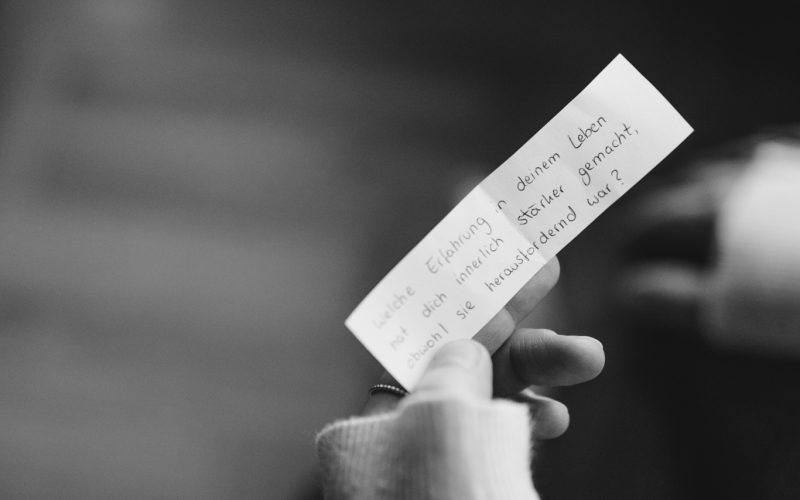 Welche Erfahrung in deinem Leben
hat dich innerlich stärker gemacht,
obwohl sie herausfordernd war?